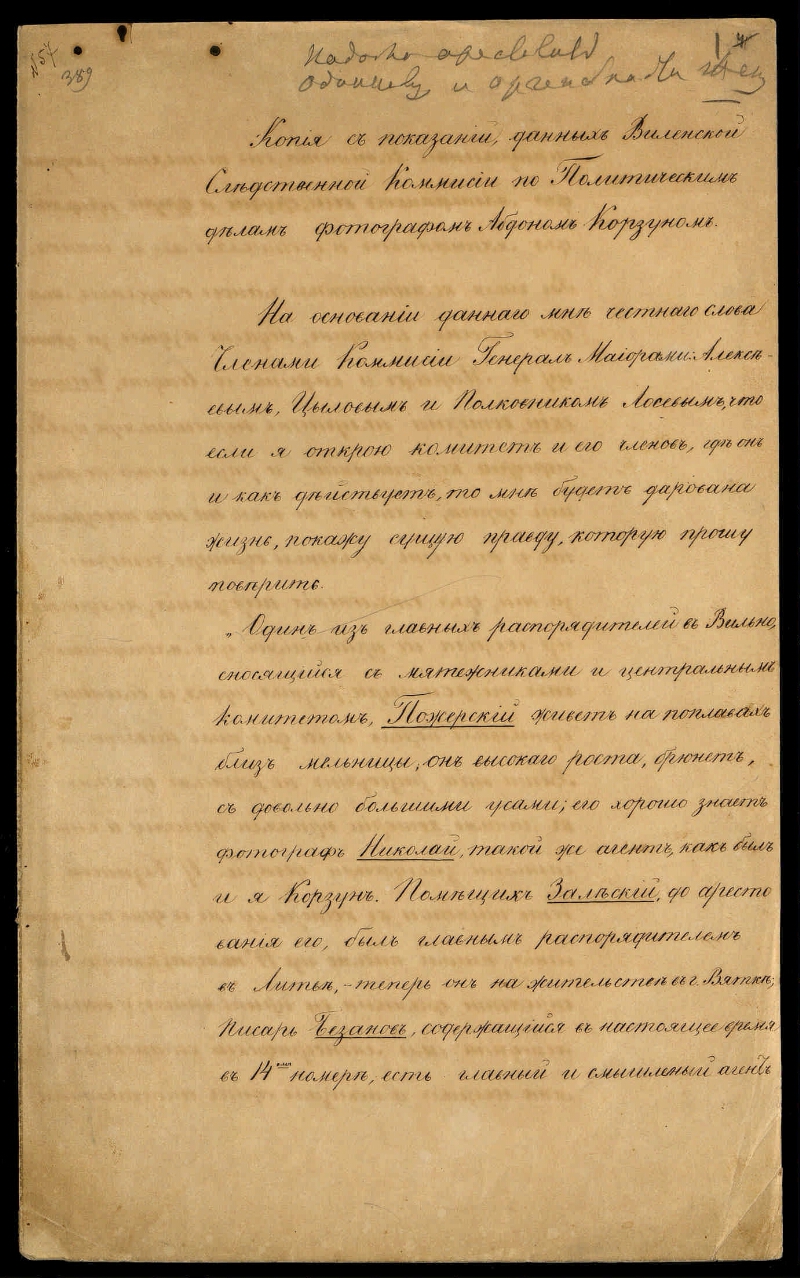 №57
389
1
Надобно арестовать
и
Копія съ показаній, данныхъ Виленской
Слѣдственной Коммисіи по Политическимъ
дѣламъ фотографомъ Абдономъ Корзуномъ.
На основаніи даннаго мнѣ честнаго слова
Членами Коммисіи Генералъ Маіорами: Алексѣ-
евымъ, Цыловымъ и Полковникомъ Лосевымъ, что
если я открою комитетъ и его членовъ, гдѣ онъ
и какъ дѣйствуетъ, то мнѣ будетъ дарована
жизнь, покажу сущую правду, которую прошу
повѣрить.
„Одинъ изъ главныхъ распорядителей въ Вильно,
сносящійся съ мятежниками и центральнымъ
комитетомъ, Пожерскій живетъ на поплавахъ
близъ мельницы; онъ высокаго роста, брюнетъ,
съ довольно большими усами; его хорошо знаетъ
фотографъ Николай, такой же агентъ, какъ былъ
и я Корзунъ. Помѣщикъ Залѣскій, до аресто
ванія его, былъ главнымъ распорядителемъ
въ Литвѣ, - теперь онъ на жительствѣ въ г. Вяткѣ;
Писарь Безановъ, содержащійся въ настоящее время
въ 14 номерѣ, есть главный и смышленый агентъ